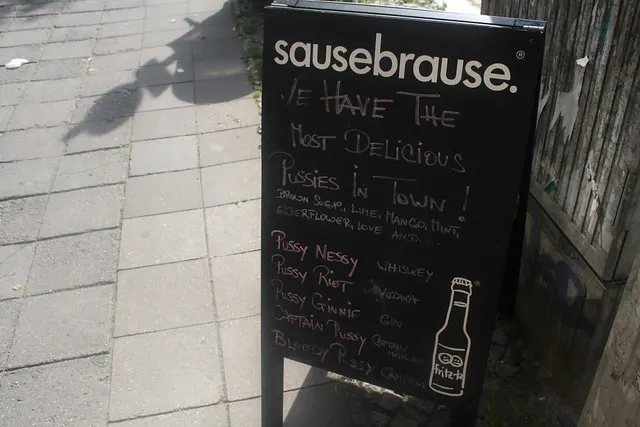 sausebrause.®
WE HAVE THE
MOST DELICIOUS
PUSSIES IN TOWN!
BROWN SUGAR, LIME, MANGO, MINT,
ELDERFLOWER, LOVE AND....
PUSSY NESSY WHISKEY
PUSSY RIOT
PUSSY GINNIE GIN
CAPTAIN PUSSY CAPTAIN MORGAN
BLOODY PUSSY CAMPARI
fritz-k